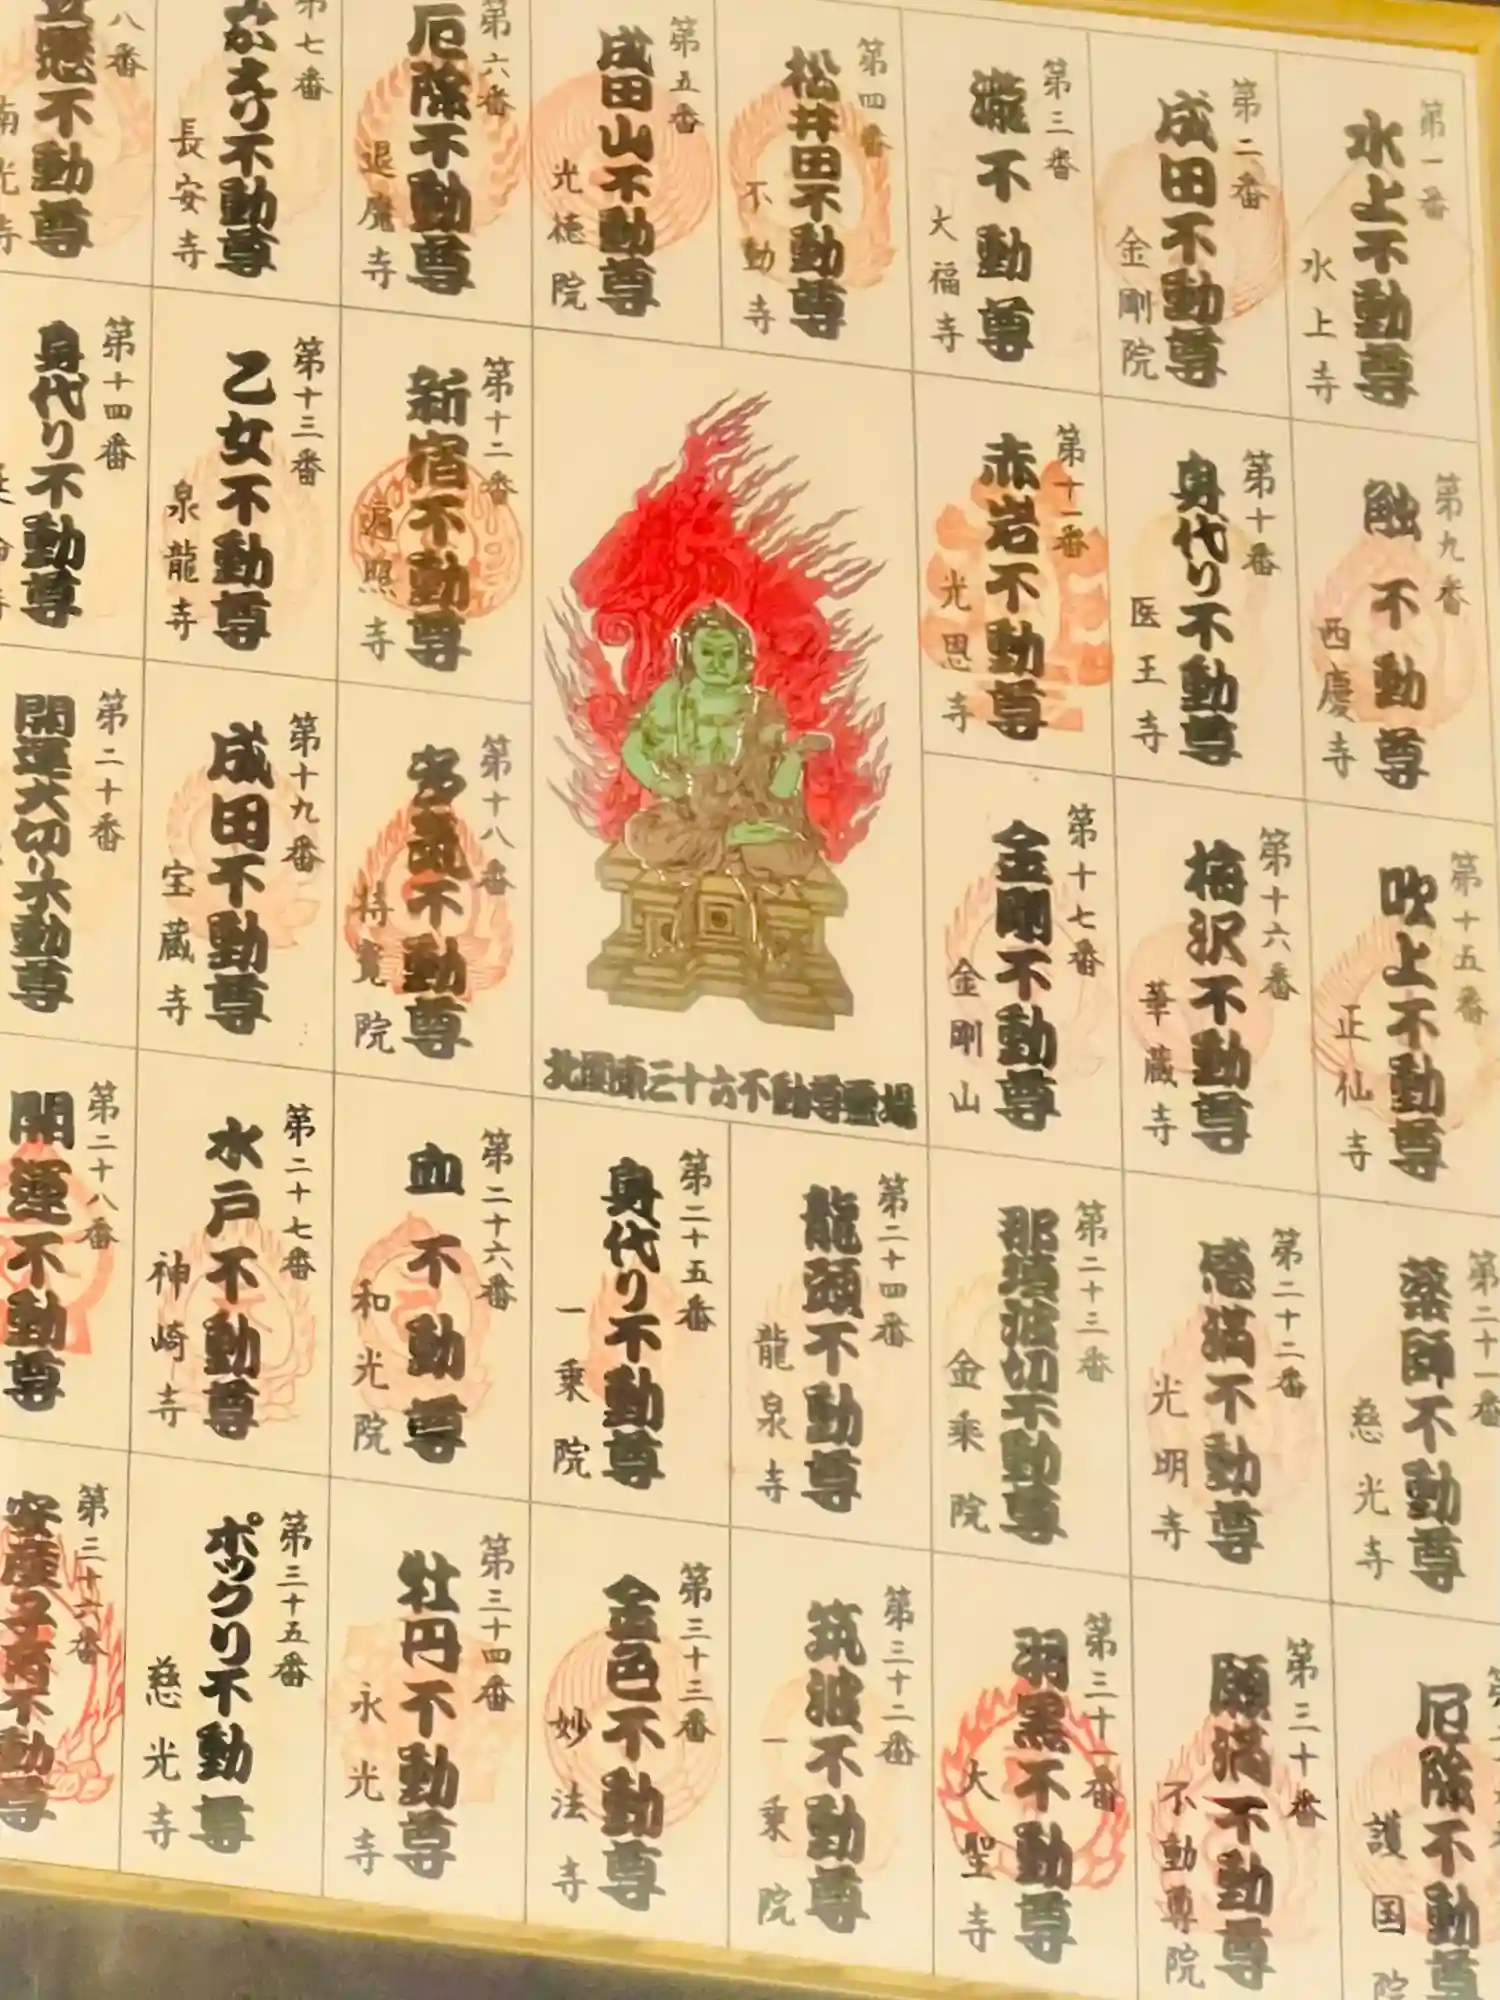 第一番
水上不動尊
水上寺
第二番
成田不動尊
金剛院
第三番
瀧不動尊
大福寺
第四番
松井田不動尊
不動寺
第五番
成田山不動尊
光徳院
第六番
厄除不動尊
退魔寺
第七番
不動尊
長安寺
八番
不動尊
南光寺
第九番
触不動尊
西慶寺
第十番
身代り不動尊
医王寺
第十一番
赤岩不動尊
光恩寺
第十二番
新宿不動尊
遍照寺
第十三番
乙女不動尊
泉龍寺
第十四番
身代り不動尊
第十五番
吹上不動尊
正仙寺
第十六番
梅沢不動尊
華蔵寺
第十七番
金剛不動尊
金剛山
北関東三十六不動尊霊場
第十八番
多気不動尊
持寶院
第十九番
成田不動尊
宝蔵寺
第二十番
開運大切り不動尊
第二十一番
薬師不動尊
慈光寺
第二十二番
感満不動尊
光明寺
第二十三番
那須波切不動尊
金乗院
第二十四番
龍頭不動尊
龍泉寺
第二十五番
身代り不動尊
一乗院
第二十六番
血不動尊
和光院
第二十七番
水戸不動尊
神崎寺
第二十八番
開運不動尊
厄除不動尊
護国院
第三十番
願満不動尊
不動尊院
第三十一番
羽黒不動尊
大聖寺
第三十二番
筑波不動尊
一乗院
第三十三番
金色不動尊
妙法寺
第三十四番
牡円不動尊
永光寺
第三十五番
ポックリ不動尊
慈光寺
第三十六番
安産子育不動尊